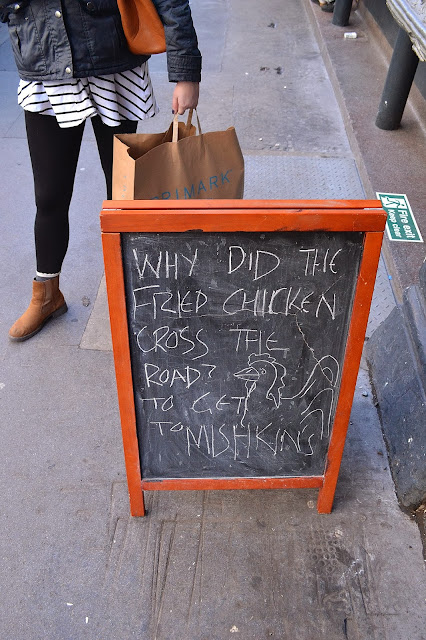 PRIMARK
Fire exit
Keep clear
WHY DID THE
FRIED CHICKEN
CROSS THE
ROAD?
TO GET
TO MISHKINS